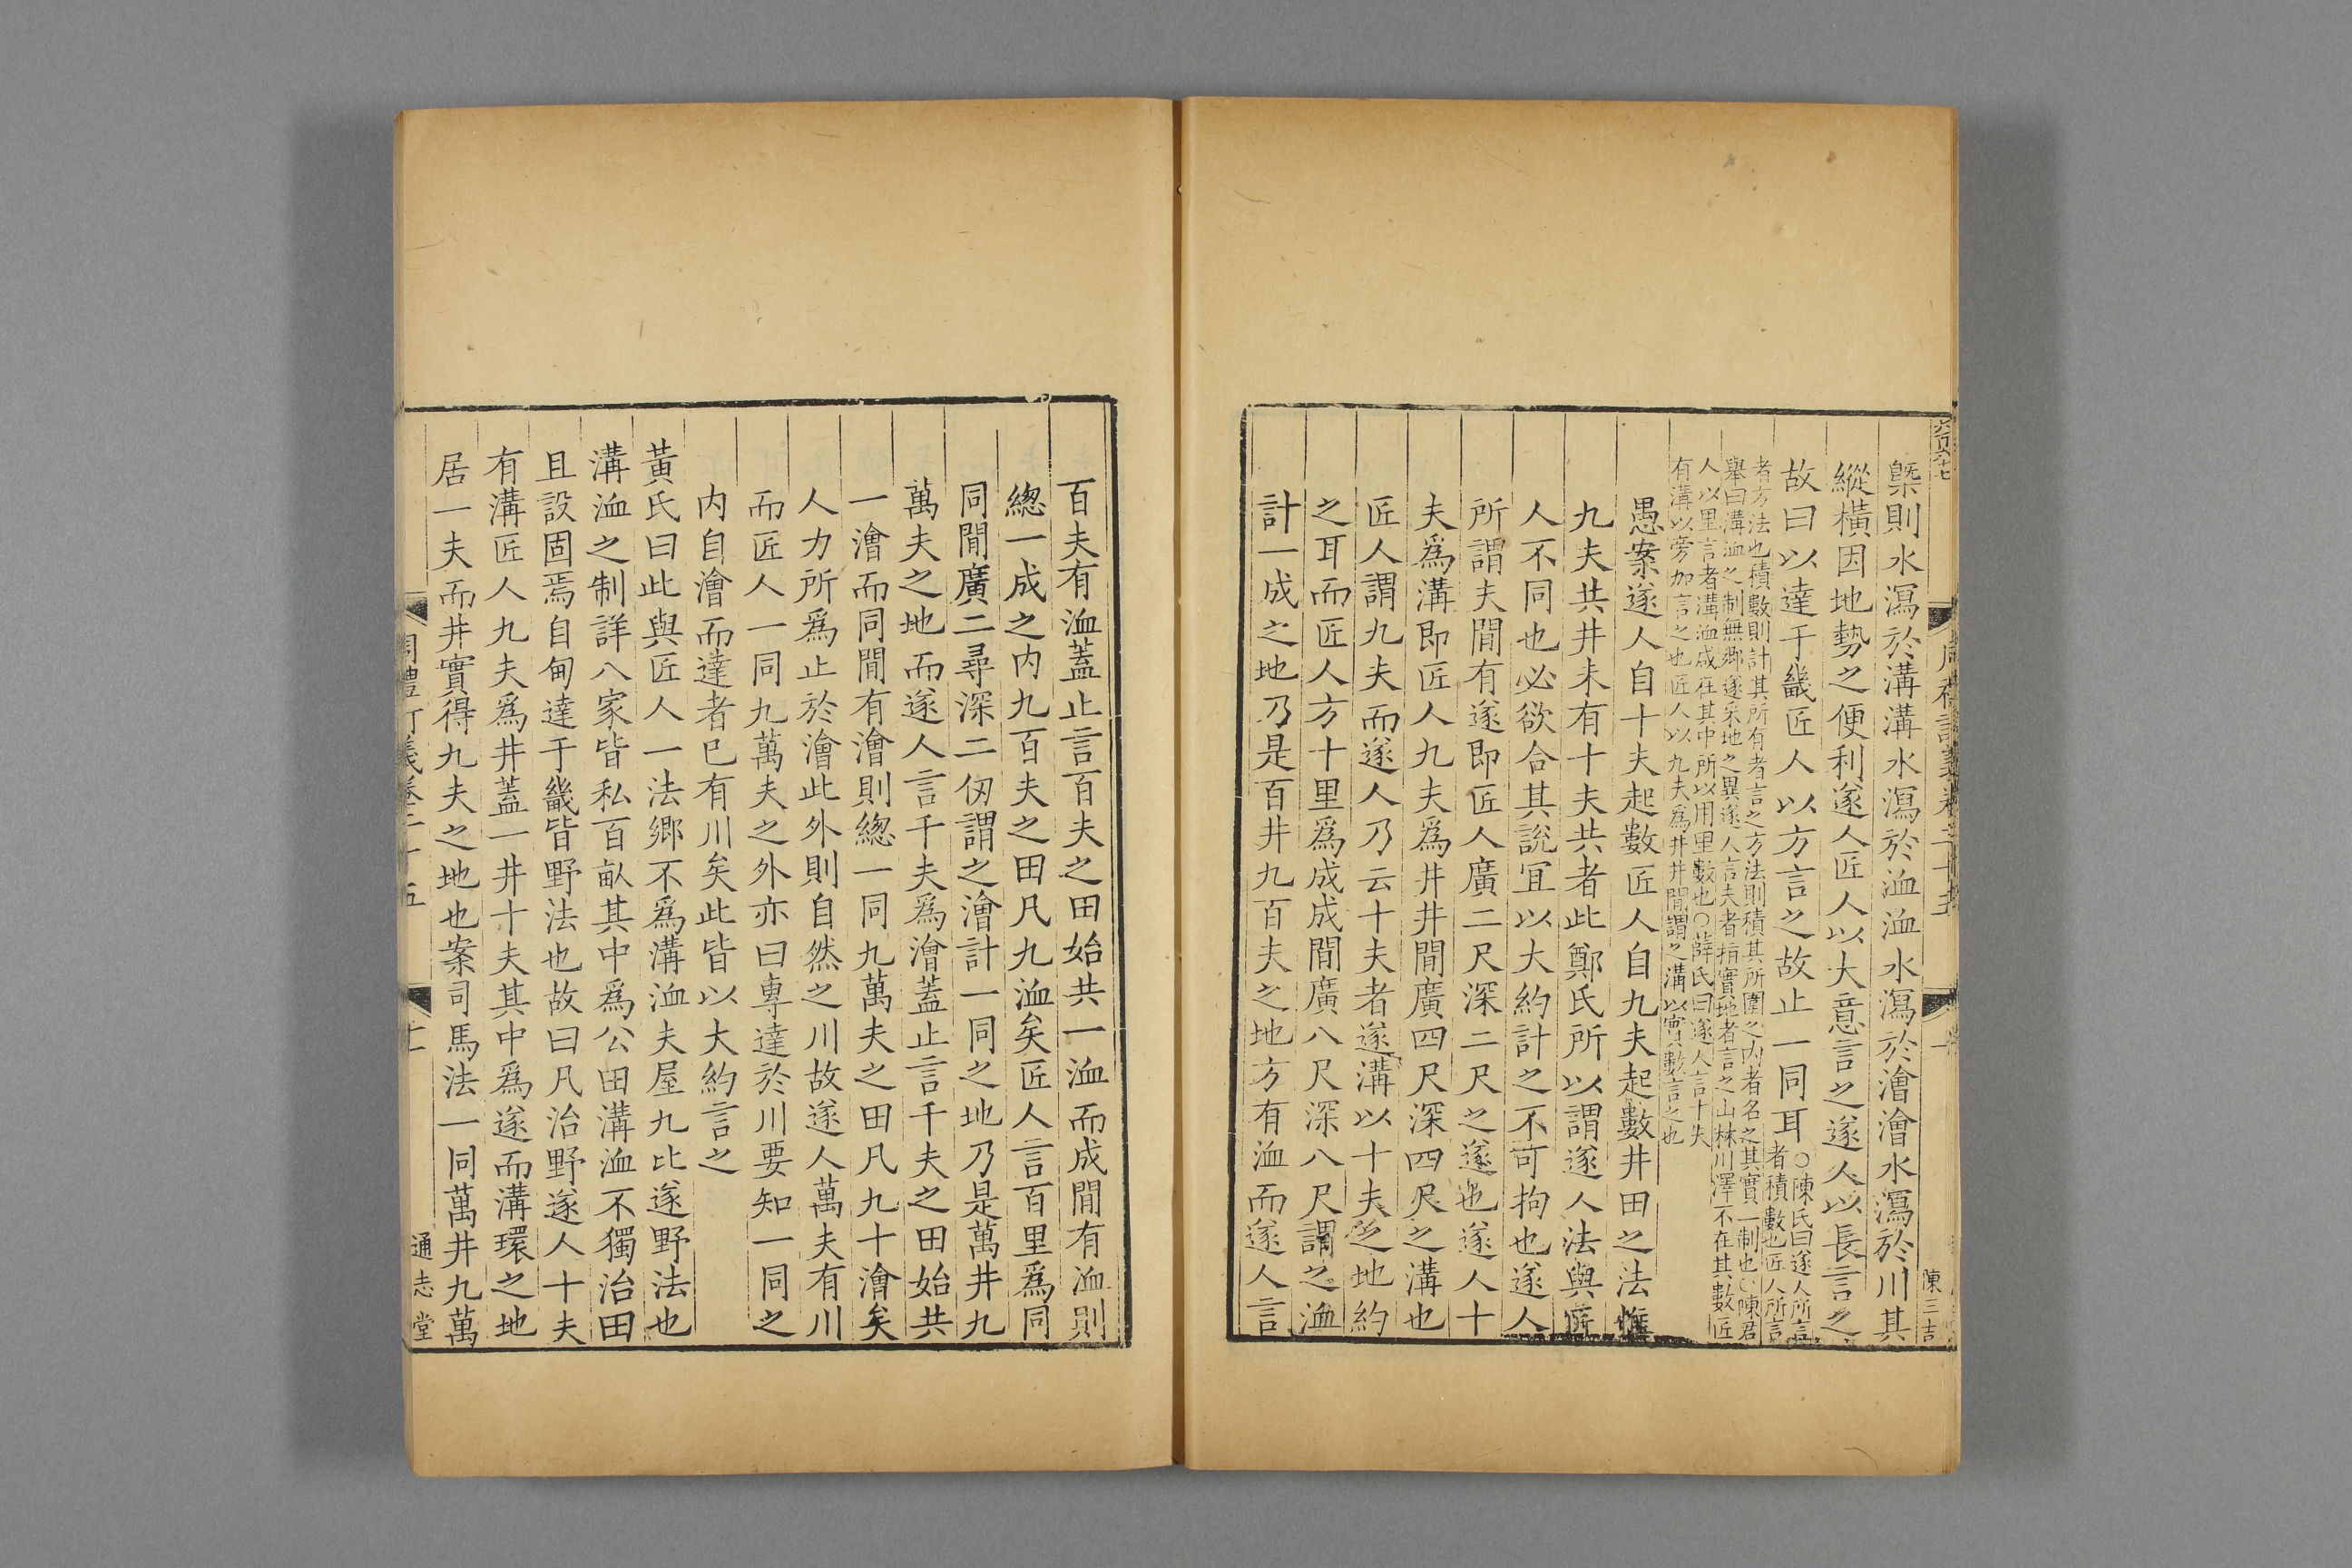 槩則水瀉於溝溝水瀉於洫洫水瀉於澮澮水瀉於川其
縱橫因地勢之便利遂人匠人以大意言之遂人以長言之
故曰以達于畿匠人以方言之故止一同耳○陳氏曰遂人所言
者積數也匠人所言
者方法也積數則計其所有者言之方法則積其所圍之内者名之其實一制也○陳君
舉曰溝洫之制無鄉遂采地之異遂人言夫者指實地者言之山林川澤不在其數匠
人以里言者溝洫咸在其中所以用里數也○薛氏曰遂人言十夫
有溝以旁加言之也匠人以九夫爲井井間謂之溝以實數言之也
愚案遂人自十夫起數匠人自九夫起數井田之法惟
九夫共井未有十夫共者此鄭氏所以謂遂人法與匠
人不同也必欲合其說宜以大約計之不可拘也遂人
所謂夫間有遂即匠人廣二尺深二尺之遂也遂人十
夫爲溝即匠人九夫爲井井間廣四尺深四尺之溝也
匠人謂九夫而遂人乃云十夫者遂溝以十夫之地約
之耳而匠人方十里爲成成間廣八尺深八尺謂之洫
計一成之地乃是百井九百夫之地方有洫而遂人言
陳三吉
百夫有洫蓋止言百夫之田始共一洫而成間有洫則
總一成之内九百夫之田凡九洫矣匠人言百里爲同
同間廣二尋深二仞謂之澮計一同之地乃是萬井九
萬夫之地而遂人言千夫爲澮蓋止言千夫之田始共
一澮而同間有澮則總一同九萬夫之田凡九十澮矣
人力所爲止於澮此外則自然之川故遂人萬夫有川
而匠人一同九萬夫之外亦曰專達於川要知一同之
内自澮而達者已有川矣此皆以大約言之
黃氏曰此與匠人一法鄉不爲溝洫夫屋九比遂野法也
溝洫之制詳八家皆私百畝其中爲公田溝洫不獨治田
且設固焉自甸達于畿皆野法也故曰凡治野遂人十夫
有溝匠人九夫爲井蓋一井十夫其中爲遂而溝環之地
居一夫而井實得九夫之地也案司馬法一同萬井九萬
周禮訂義卷二十五
十一
通志堂